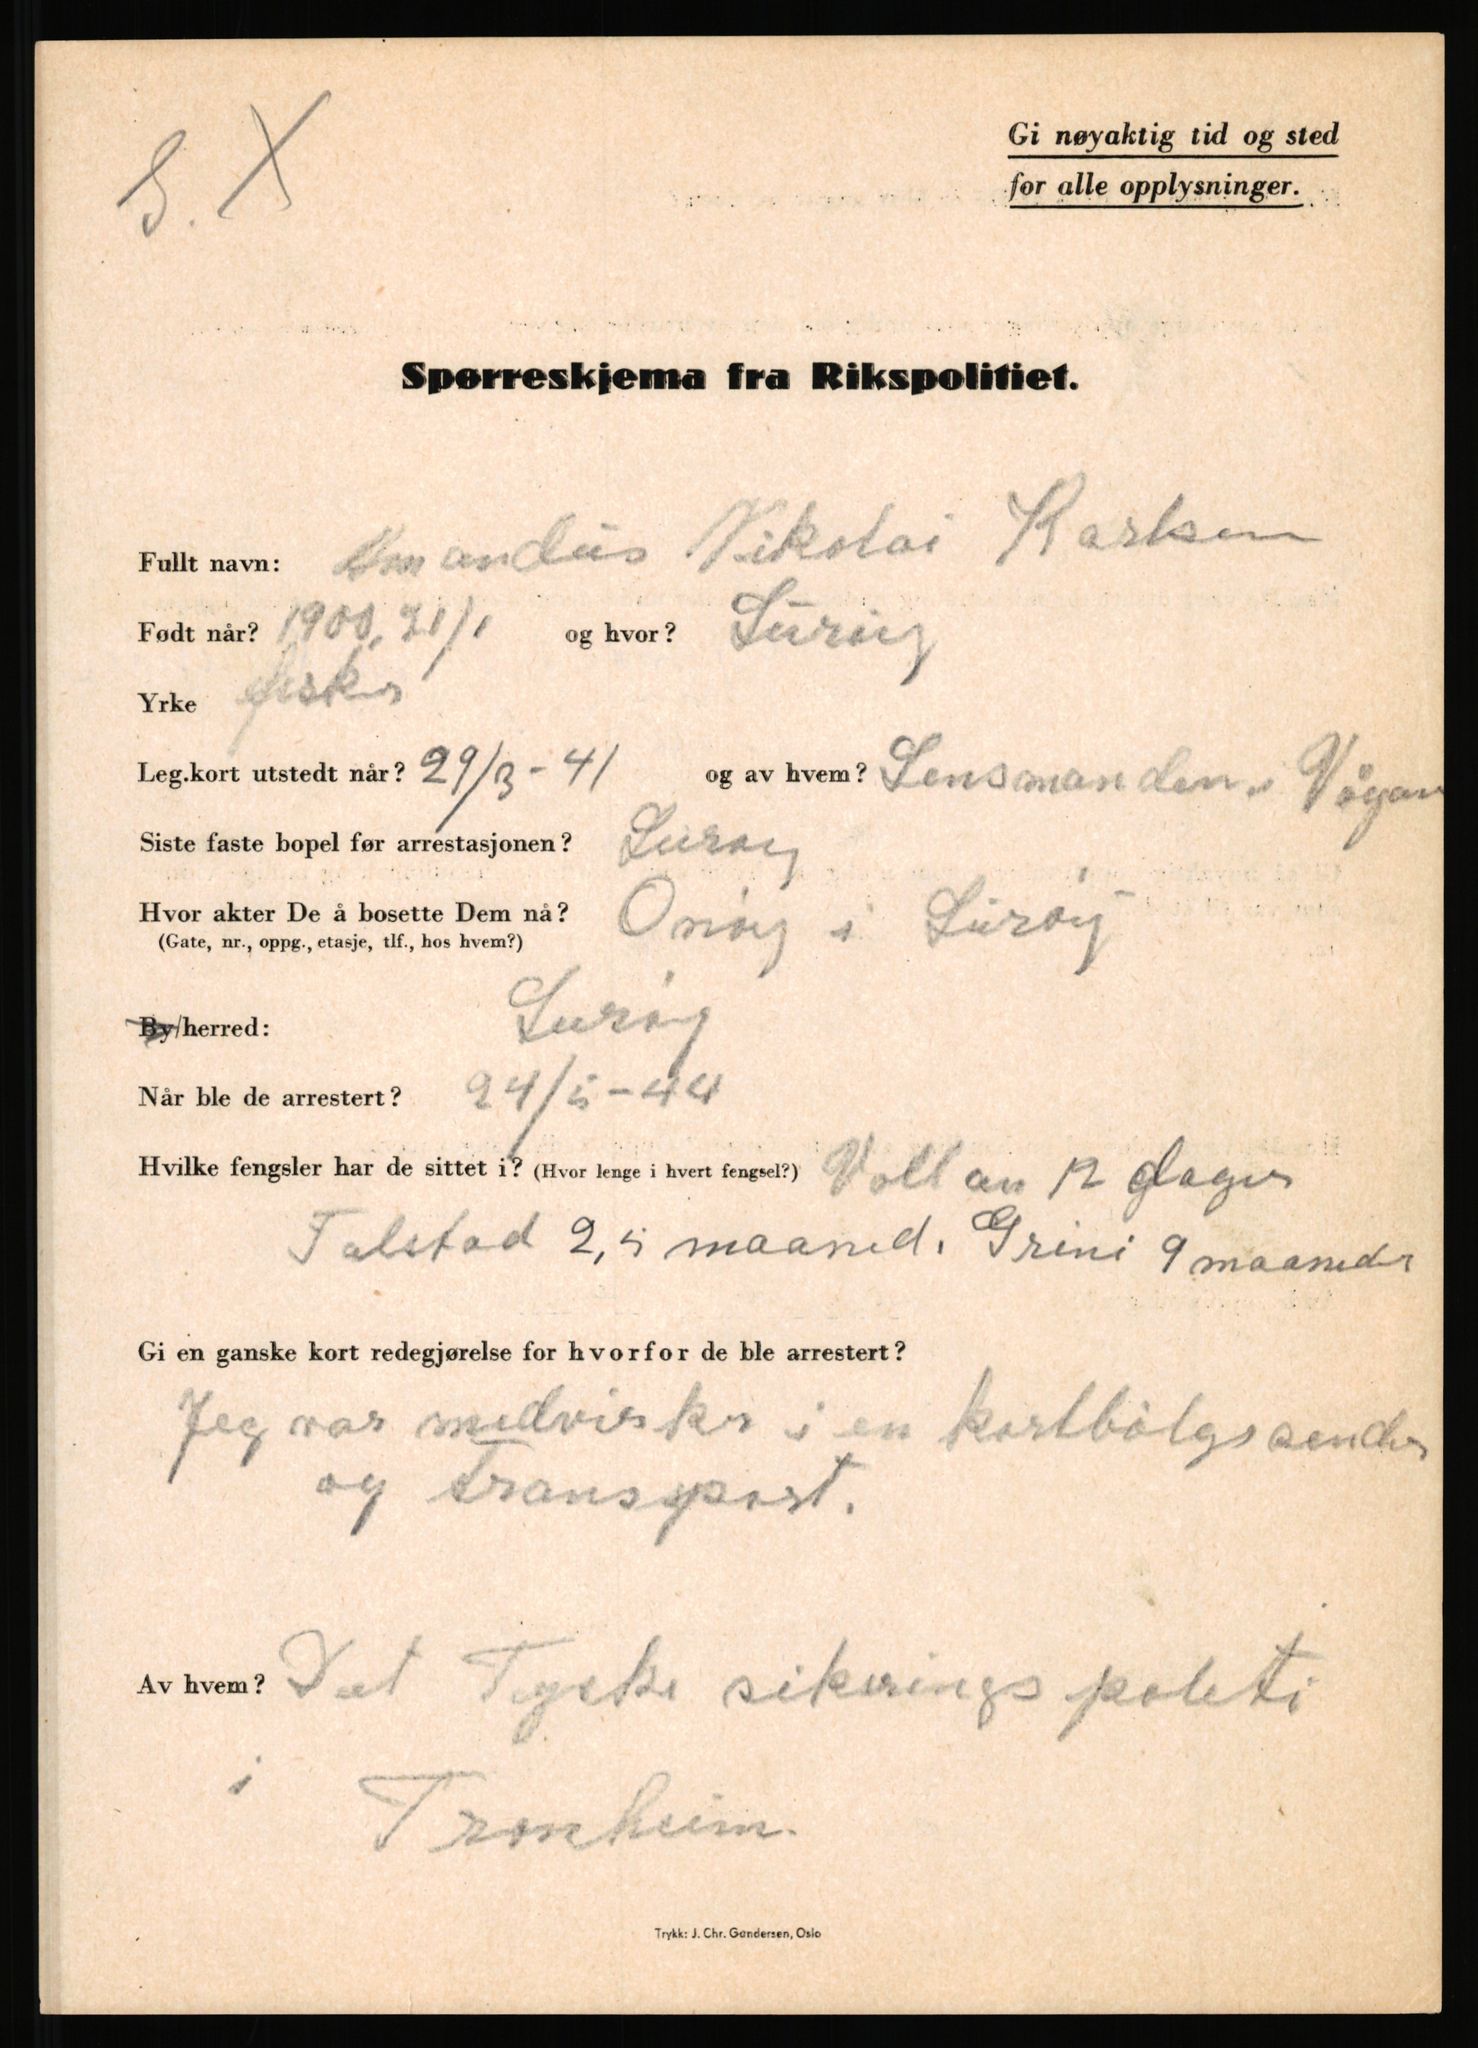 S. X
Gi nøyaktig tid og sted
for alle opplysninger.
Spørreskjema fra Rikspolitiet.
Fullt navn: Amandus Nikolai Karlsen
Født når? 1900, 21/1 og hvor? Lurøy
Yrke fisker
Leg.kort utstedt når? 29/3-41 og av hvem? Lensmanden i Vågan
Siste faste bopel før arrestasjonen? Lurøy
Hvor akter De å bosette Dem nå? Onøy i Lurøy
(Gate, nr., oppg., etasje, tlf., hos hvem?)
By/herred: Lurøy
Når ble de arrestert? 24/5-44
Hvilke fengsler har de sittet i? (Hvor lenge i hvert fengsel?) Vollan 12 dager
Falstad 2,5 maaned. Grini 9 maaneder
Gi en ganske kort redegjørelse for hvorfor de ble arrestert?
Jeg var medvirker i en kortbølgssender
og Transport.
Av hvem? Det Tyske sikerings poleti
i Tronheim.
Trykk: J. Chr. Gundersen, Oslo